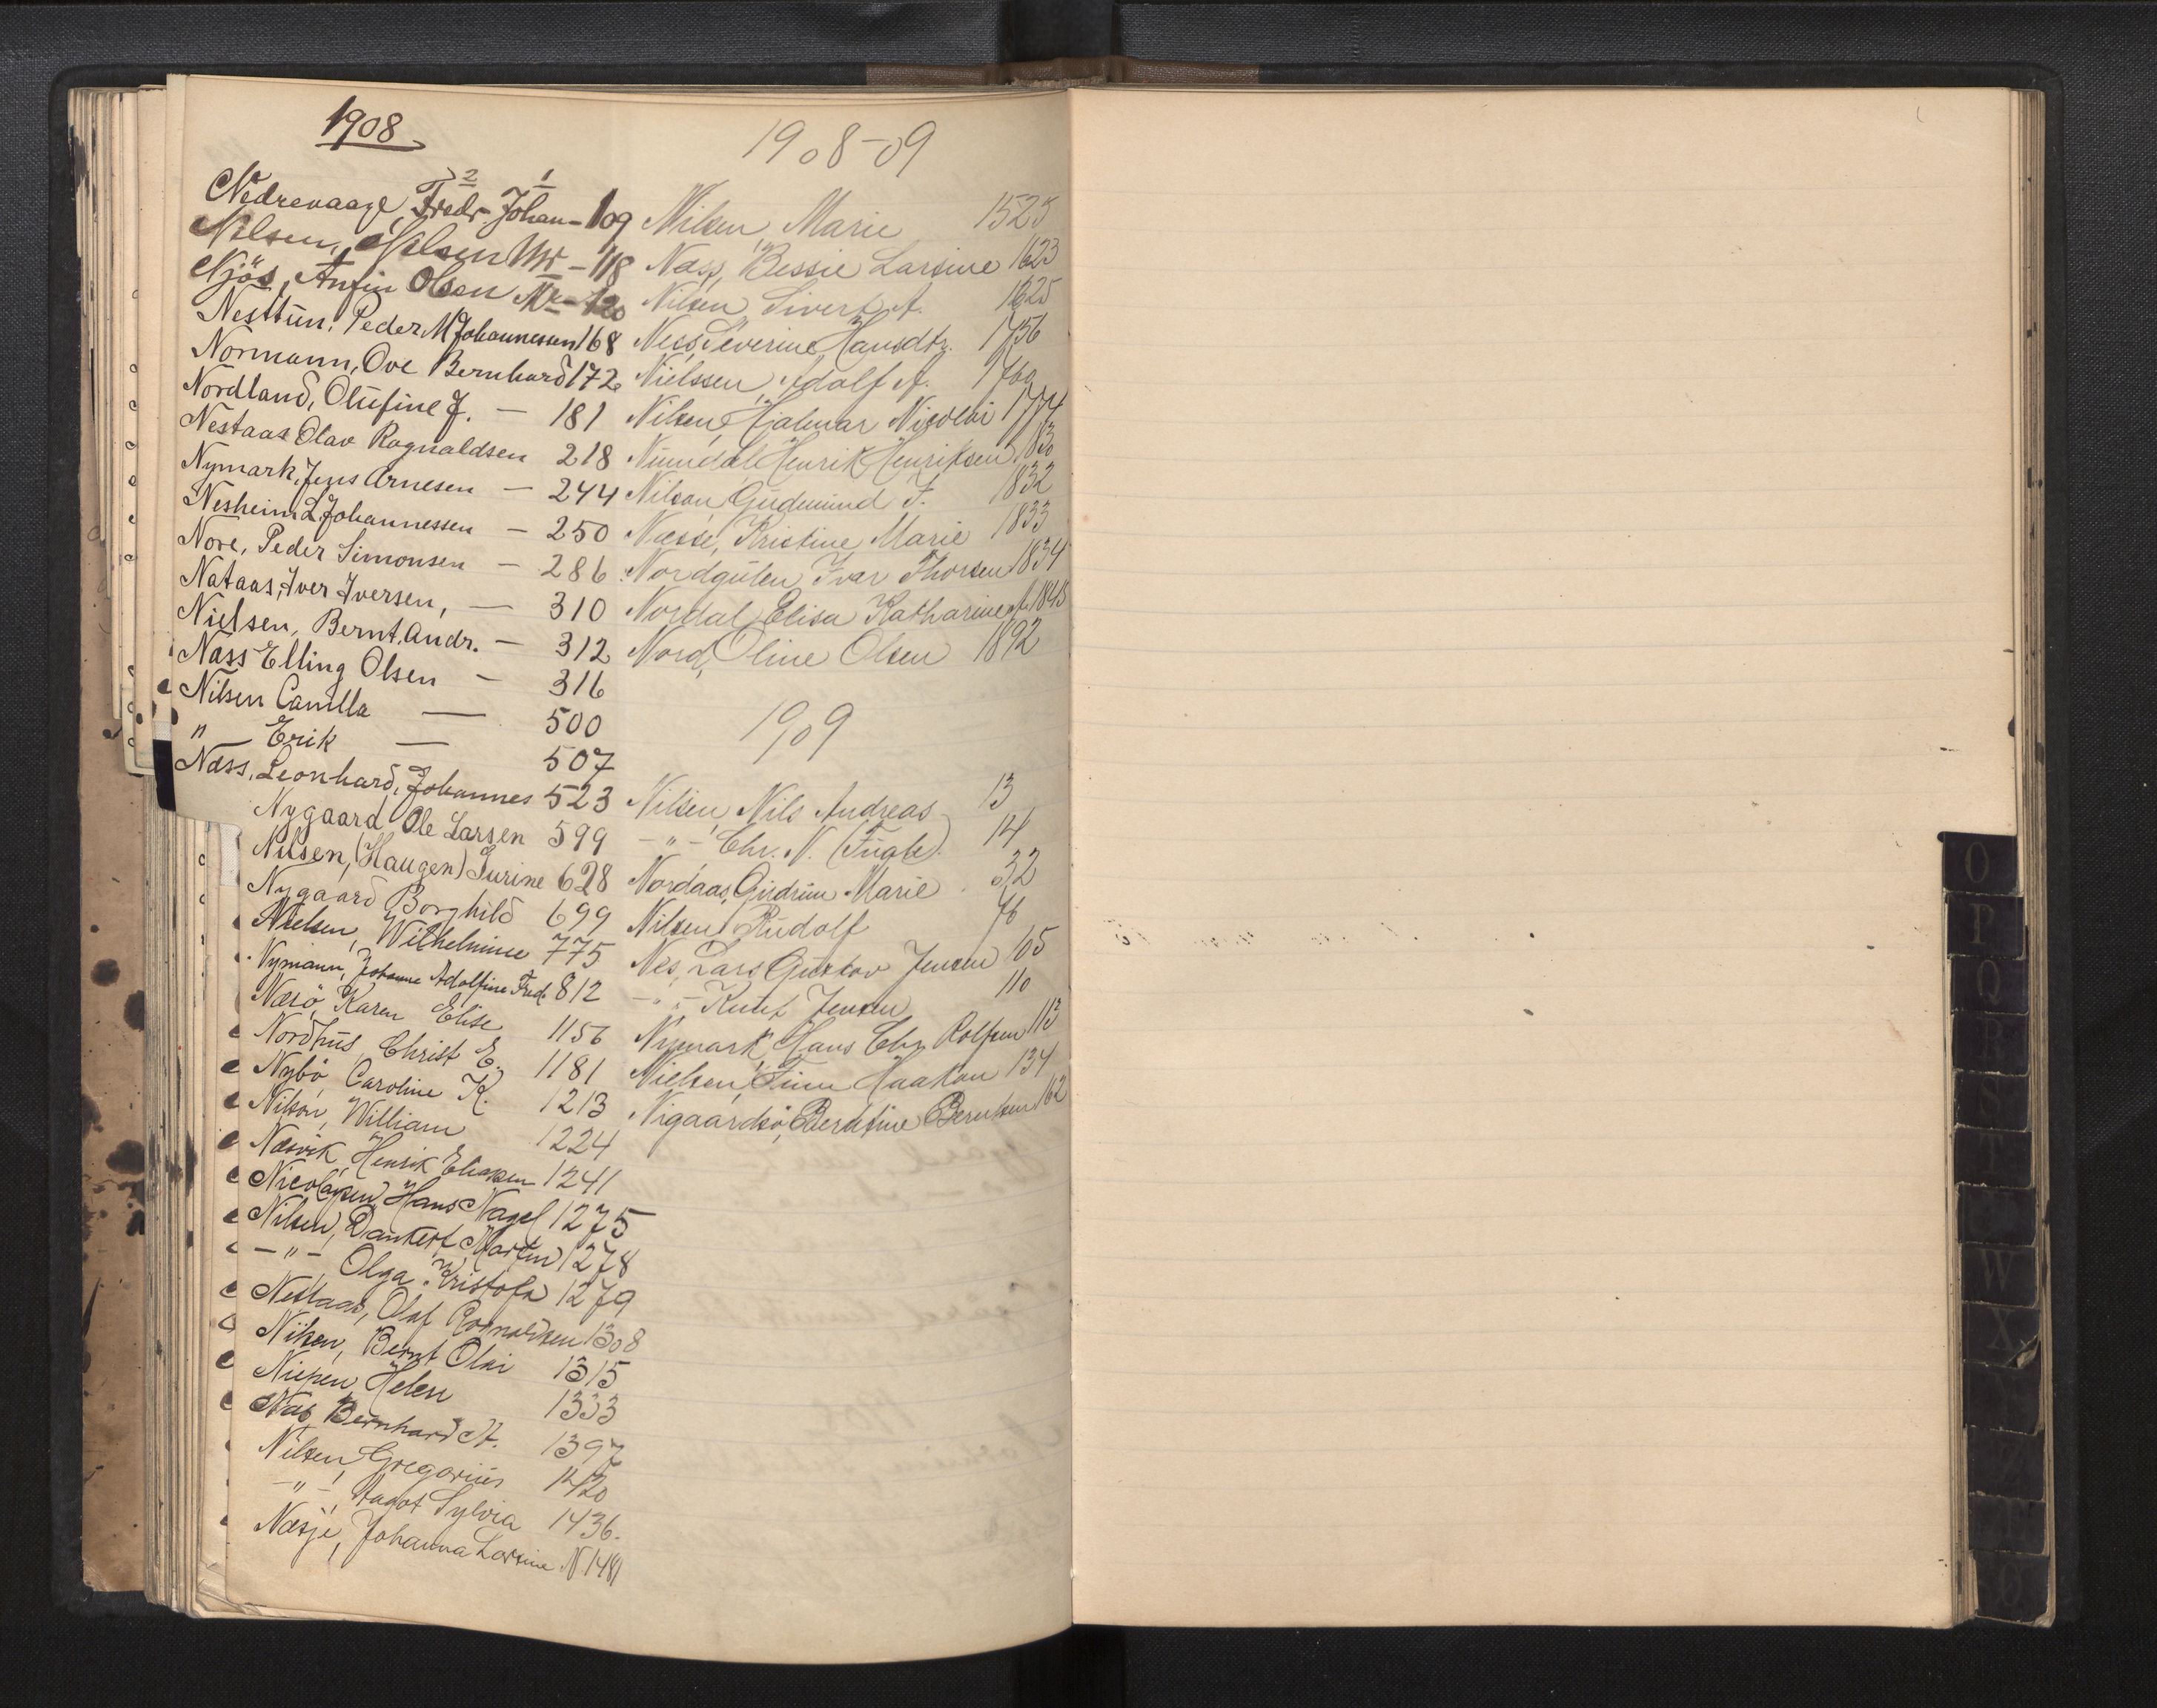 1908
2 1
Nedrevaage, Fredr. Johan - 109
Nilsen, Nilsen Mr - 118
Njös, Anfin Olsen Mr - 120
Nesttun, Peder M Johannessen 168
Normann, Ove Bernhard 172
Nordland, Olufine J. — 181
Nestaas Olav Ragnvaldsen 218
Nymark, Jens Arnesen — 244
Nesheim L Johannessen — 250
Nore, Peder Simonsen — 286
Nataas, Iver Iversen, — 310
Nielsen, Bernt. Andr. — 312
Næss Elling Olsen — 316
Nilsen Camilla — 500
" Erik — 507
Næss, Leonhard, Johannes 523
Nygaard Ole Larsen 599
Nilsen, (Haugen) Gurine 628
Nygaard Borghild 699
Nielsen, Wilhelmine 775
Nymann, Johanne Adolfine Fred. 812
Næsö, Karen Elise 1156
Nordhus, Christ E. 1181
Nybö, Caroline K. 1213
Nilson, William 1224
Næsvik, Henrik Eliassen 1241
Nicolaysen, Hans Nagel 1275
Nilsen, Dankert Martin 1278
— " — Olga Kristofa 1279
Nestaas, Olaf Ragnvaldsen 1308
Nilsen, Bernt Olai 1315
Helen 1333
Næs, Bernhard A. 1397
Nilsen, Gregorius 1420
— " —, Aagot Sylvia 1436.
Næsje, Johanna Larsine N. 1481
1908-09
Nilsen, Marie 1525
Næss, Bessie Larsine 1623
Nilsen, Sivert A. 1625
Ness, Severine Hansdtr. 1756
Nielssen, Adolf A. 1760
Nilsen, Hjalmar Nicolai 1774
Numdal, Henrik Henriksen 1830
Nilson, Gudmund F. 1832
Næsse, Kristine Marie 1833
Nordgulen, Ivar Thorsen 1834
Nordal, Elisa Katharine A. 1848
Nord, Oline Olsen 1892
1909
Nilsen, Nils Andreas 13
— " — Chr. N. (Fugle) 14
Nordaas, Gudrun Marie 32
Nilsen, Rudolf 76
Nes, Lars Gustav Jensen 105
— " — Knut Jensen 110
Nymark, Hans Chr. Rolfsen 113
Nielsen, Finn Haakon 134
Nigaardsö, Berntine Berntsen 162
O
P
Q
R
S
T
W
X
Z
Ö